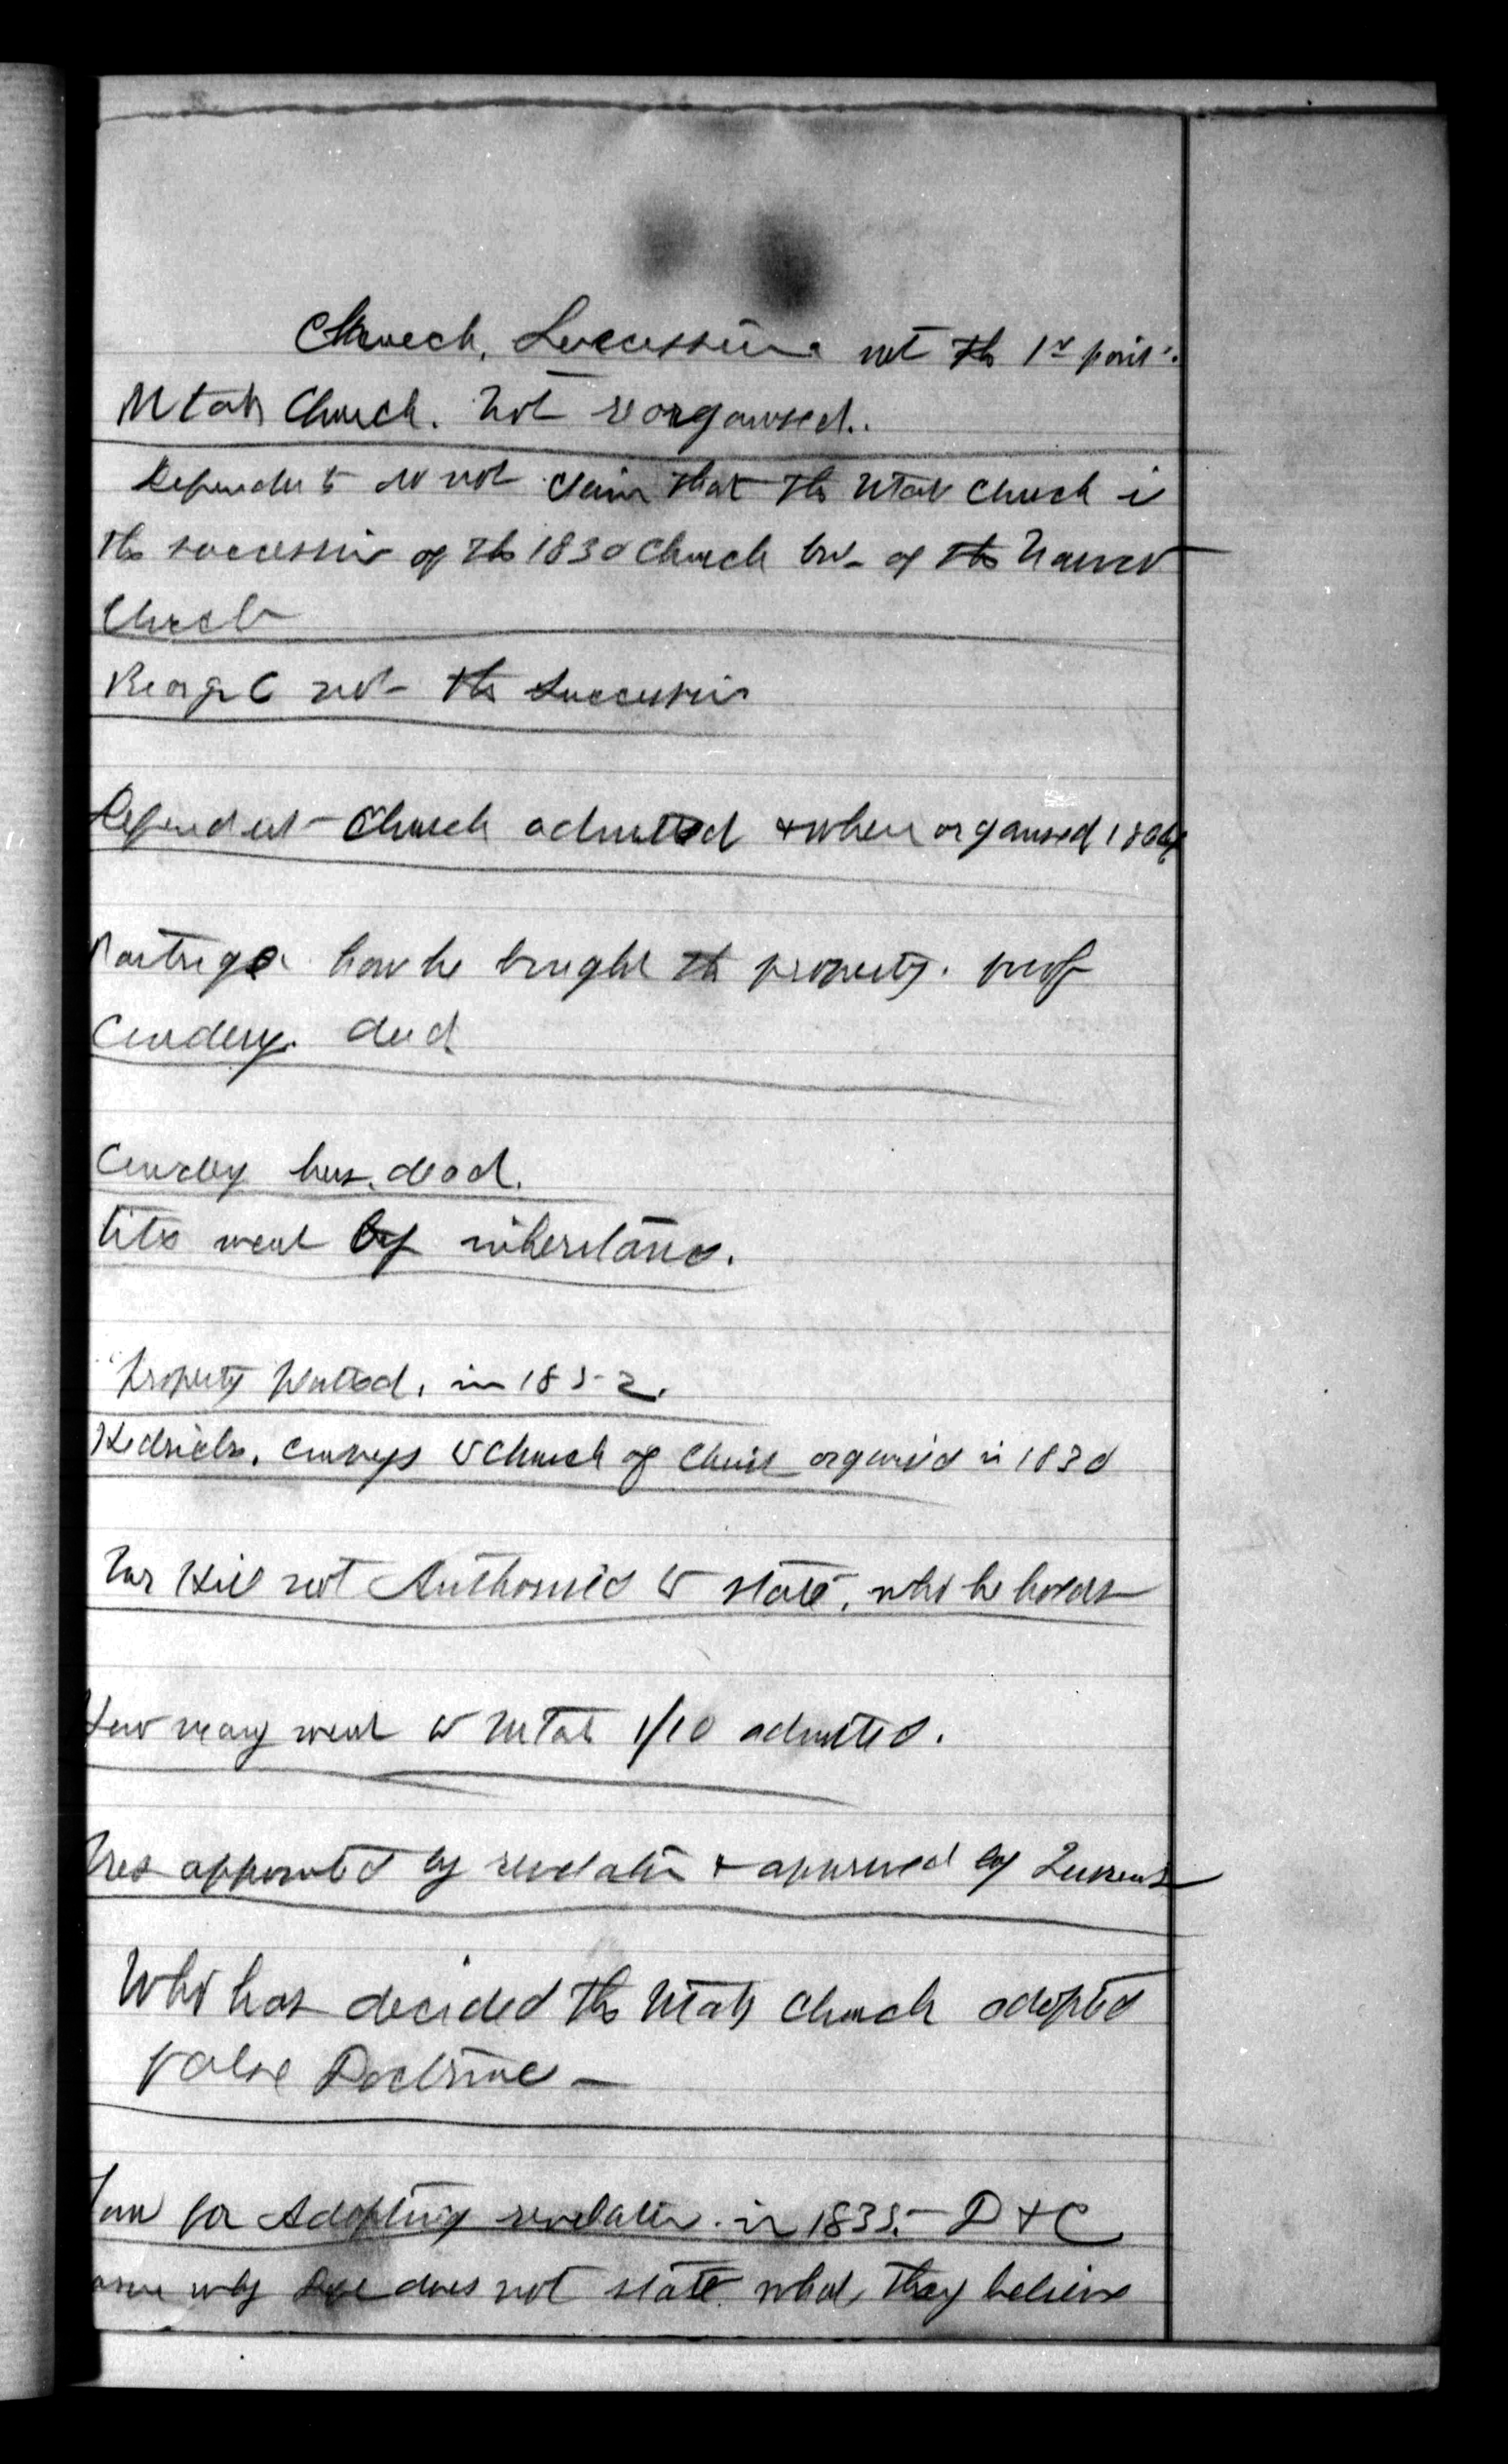 Church, Succession not the 1st point.
Utah Church. not reorganised..
Defendents do not claim that the Utah Church is
the successor of the 1830 Church but of the Nauvoo
Church
Reorg C not the Succession
Defendent Church admitted & when organised
Partrige how he bought the property. proof
Cowdery. deed
Cowdery heirs. dead.
title went by inheritance.
Property Platted, in 1852.
Hedrick. conveys to Church of Christ organised in 1830
Hill not Authorised to state, who he holds
How many went to Utah 1/10 admitted.
Pres appointed by revelation & approved by Quorums
Who has decided the Utah Church adopted
false Doctrine —
for Adopting revelation. in 1835. D & C
why does not state what they believe